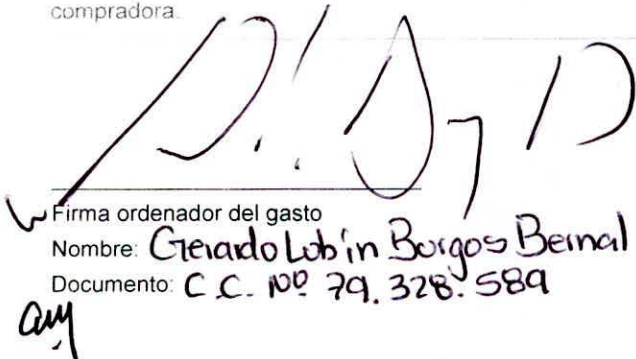 compradora.
Firma ordenador del gasto
Nombre: Gerardo Lubín Burgos Bernal
Documento: C.C. Nº 79.328.589